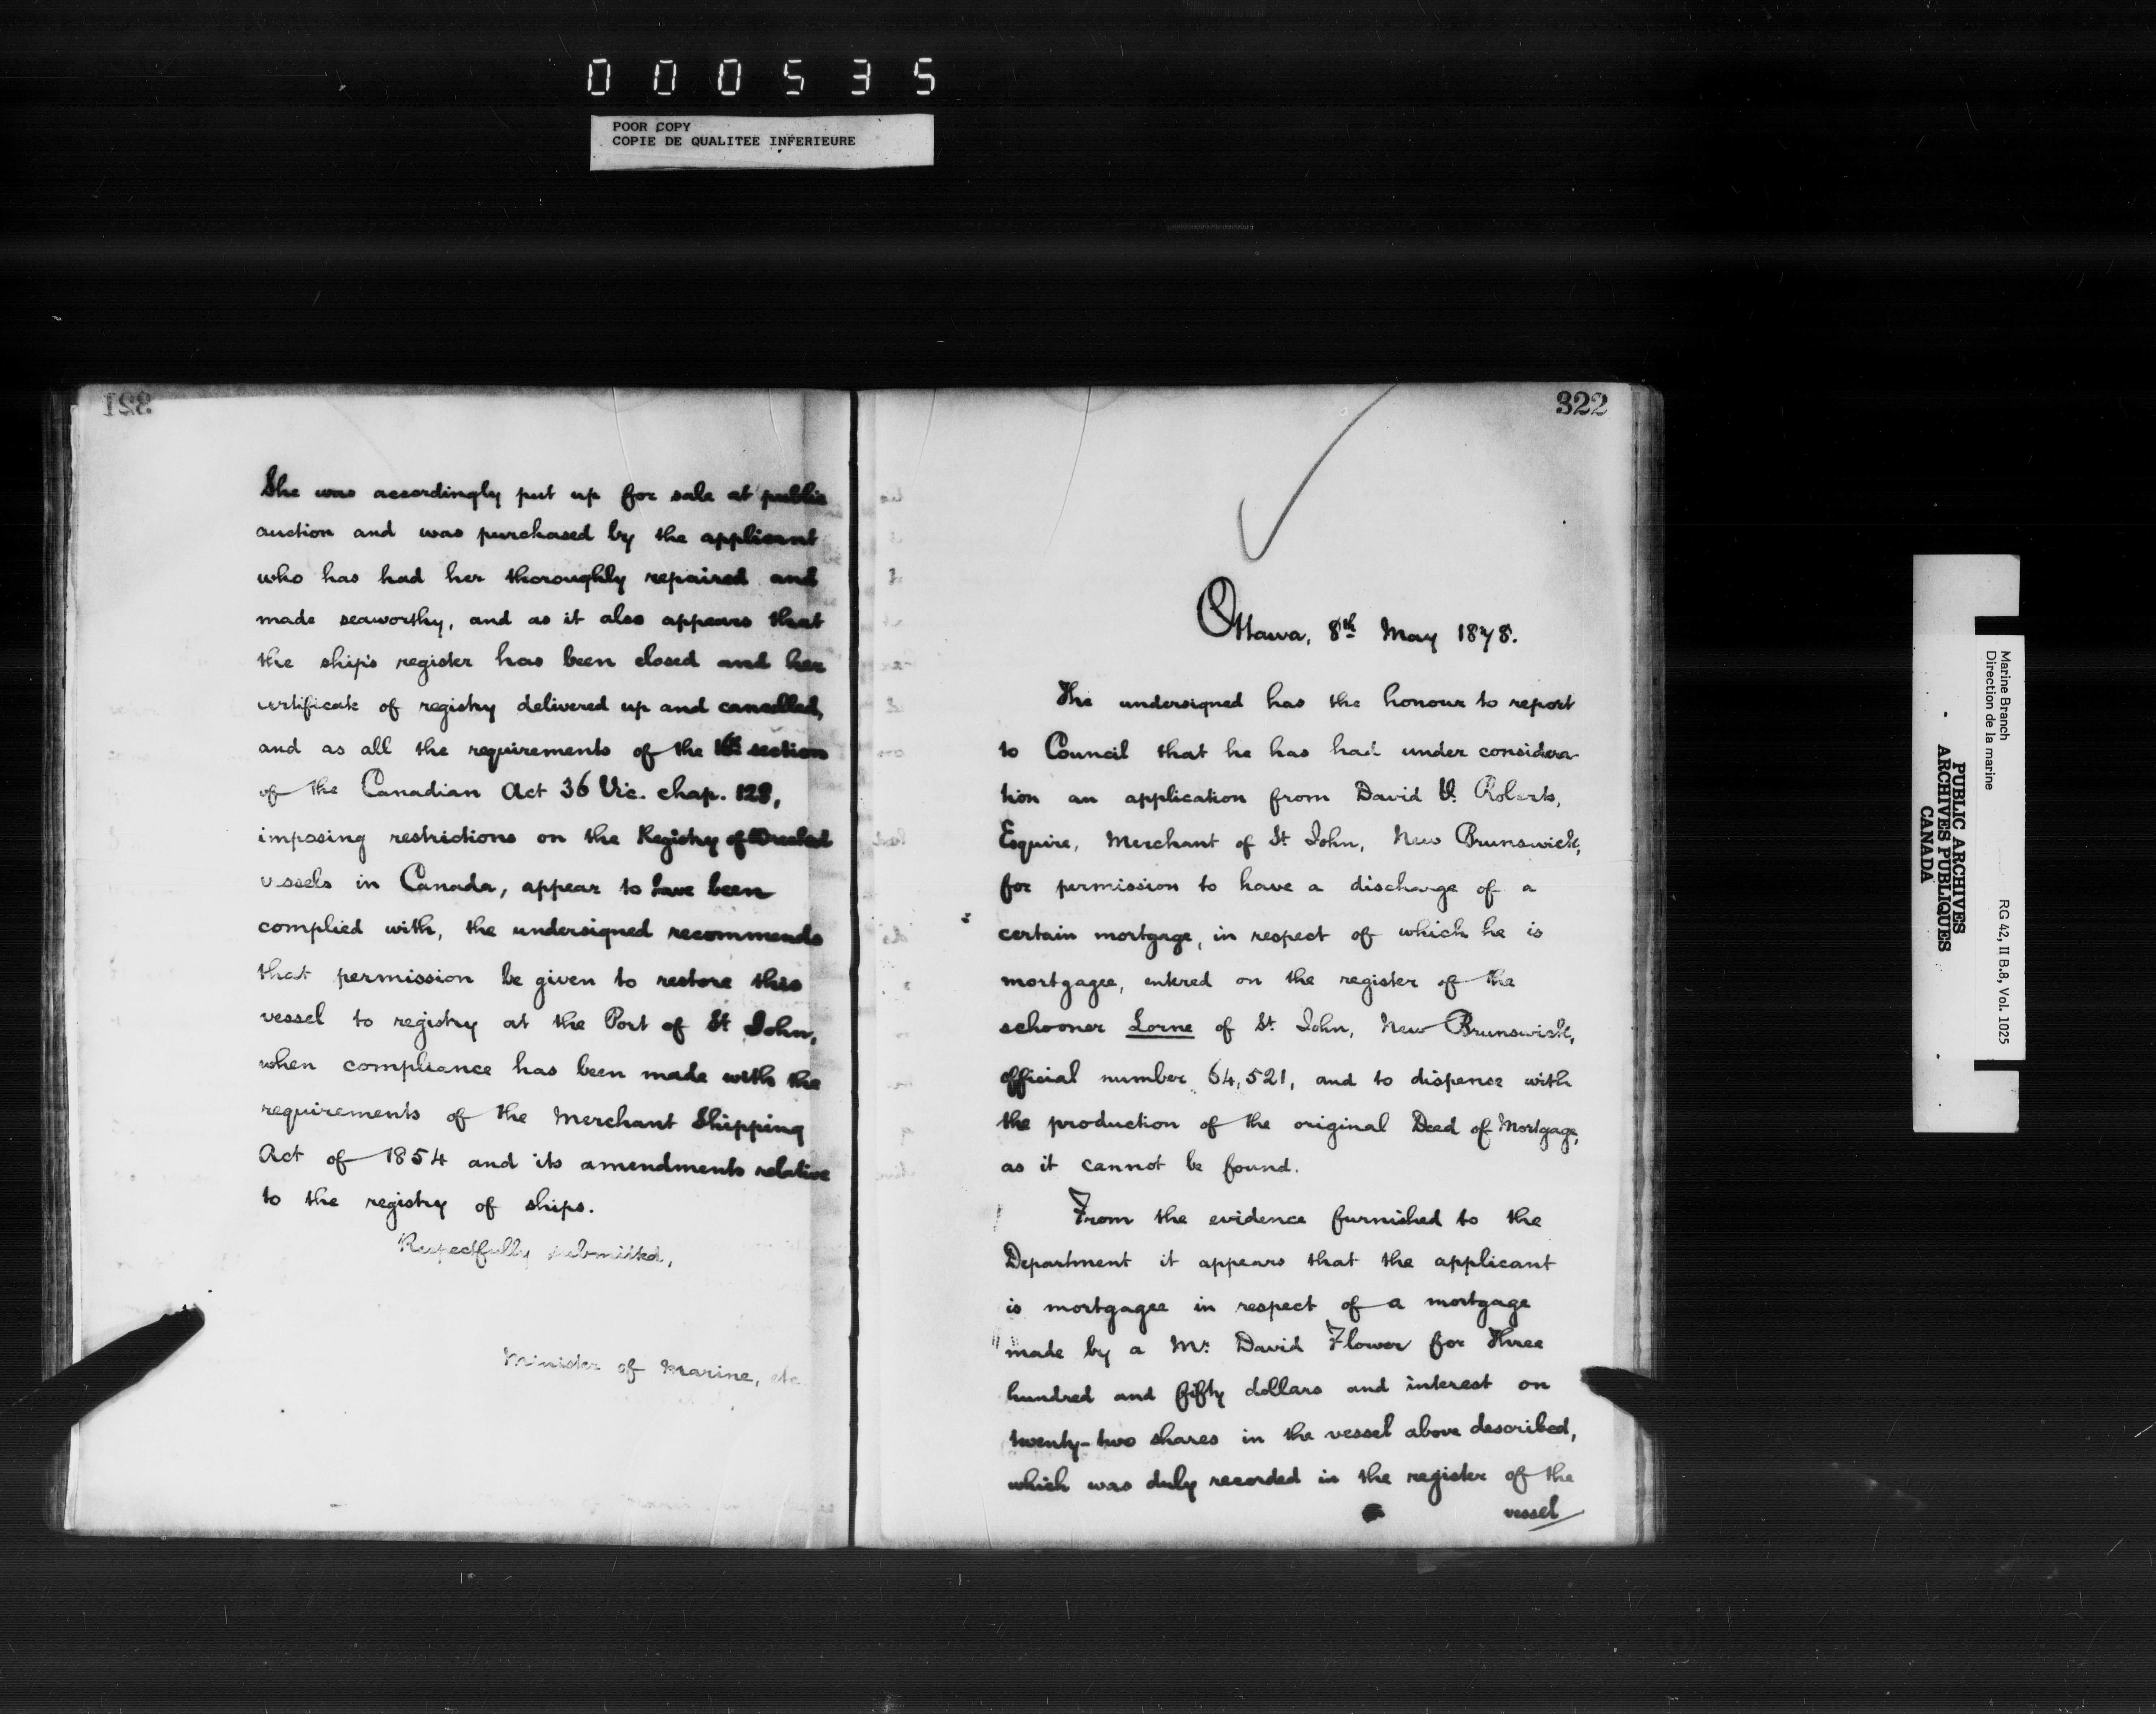 000535
POOR COPY
COPIE DE QUALITEE INFERIEURE
321
She was accordingly put up for sale at public
auction and was purchased by the applicant
who has had her thoroughly repaired and
made seaworthy, and as it also appears that
the ship's register has been closed and her
certificate of registry delivered up and cancelled,
and as all the requirements of the section
of the Canadian Act 36 Vic. chap. 128,
imposing restrictions on the Registry of Wrecked
vessels in Canada, appear to have been
complied with, the undersigned recommends
that permission be given to restore this
vessel to registry at the Port of St John,
when compliance has been made with the
requirements of the Merchant Shipping
Act of 1854 and its amendments relative
to the registry of ships.
Respectfully submitted,
Minister of Marine, etc.
322
Ottawa, 8th May 1878.
The undersigned has the honour to report
to Council that he has had under considera-
tion an application from David V. Roberts,
Esquire, Merchant of St John, New Brunswick,
for permission to have a discharge of a
certain mortgage, in respect of which he is
mortgagee, entered on the register of the
schooner Lorne of St. John, New Brunswick,
official number 64,521, and to dispense with
the production of the original Deed of Mortgage,
as it cannot be found.
From the evidence furnished to the
Department it appears that the applicant
is mortgagee in respect of a mortgage
made by a Mr. David Flower for Three
hundred and fifty dollars and interest on
twenty-two shares in the vessel above described,
which was duly recorded in the register of the
vessel
Marine Branch
Direction de la marine
RG 42, II B.8, Vol. 1025
PUBLIC ARCHIVES
ARCHIVES PUBLIQUES
CANADA